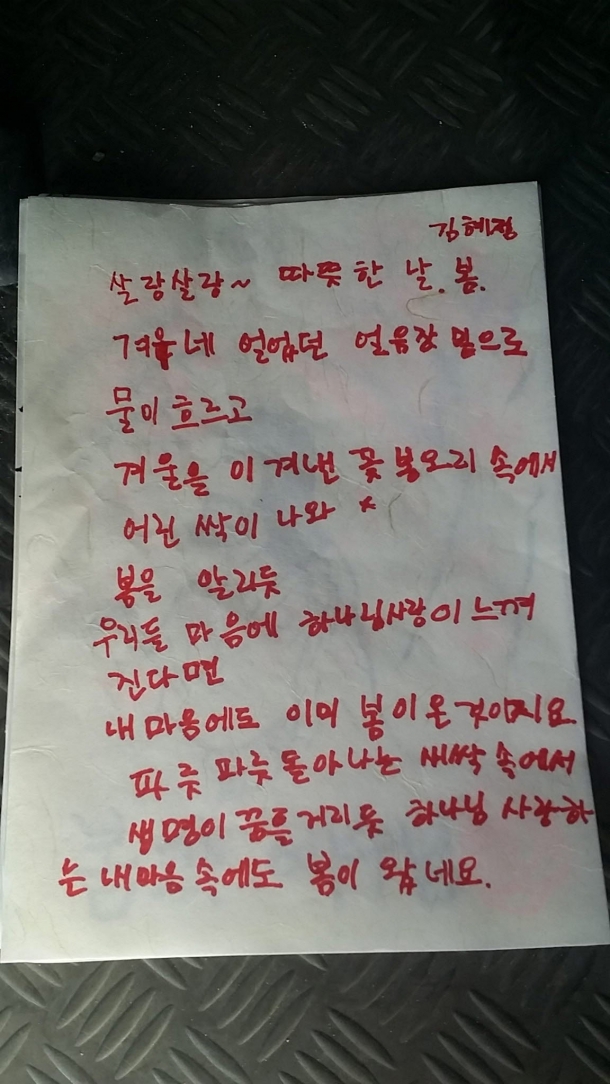 김혜정
살랑살랑~ 따뜻한 날. 봄.
겨울네 얼었던 얼음장 밑으로
물이 흐르고
겨울을 이겨낸 꽃봉오리 속에서
어린 싹이 나와
봄을 알리듯
우리들 마음에 하나님사랑이 느껴
진다면
내 마음에도 이미 봄이 온 것이지요
파릇 파릇 돋아나는 새싹 속에서
생명이 꿈틀거리듯 하나님 사랑하
는 내마음 속에도 봄이 왔네요.